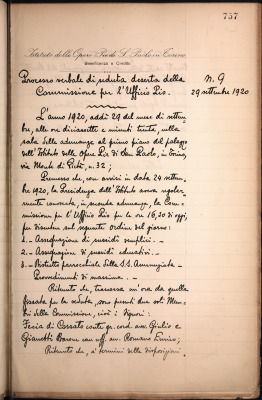 757
Istituto delle Opere Pie di S. Paolo in Torino
Beneficenza e Credito
Processo verbale di seduta deserta della
Commissione per l'Ufficio Pio.
N. 9
29 settembre 1920
L'anno 1920, addì 29 del mese di settem-
bre, alle ore diciassette e minuti trenta, nella
sala delle adunanze al primo piano del palazzo
dell'Istituto delle Opere Pie di San Paolo, in Torino,
via Monte di Pietà, n. 32;
Premesso che, con avvisi in data 24 settem-
bre 1920, la Presidenza dell'Istituto aveva regolar-
mente convocata, in seconda adunanza, la Com-
missione per l'Ufficio Pio per le ore 16,30 di oggi,
per discutere sul seguente ordine del giorno:
1. - Assegnazione di sussidi semplici. -
2. - Assegnazione di sussidi educativi. -
3. - parrocchiale della S.S. Annunziata. -
Provvedimenti di massima. -
Ritenuto che, trascorsa un'ora da quella
fissata per la seduta, sono presenti due soli Mem-
bri della Commissione, cioè i Signori:
Fecia di Cossato conte gr. cord. avv. Giulio e
Gianotti Barone cav. uff. avv. Romano Enrico;
Ritenuto che, a termini delle disposizioni